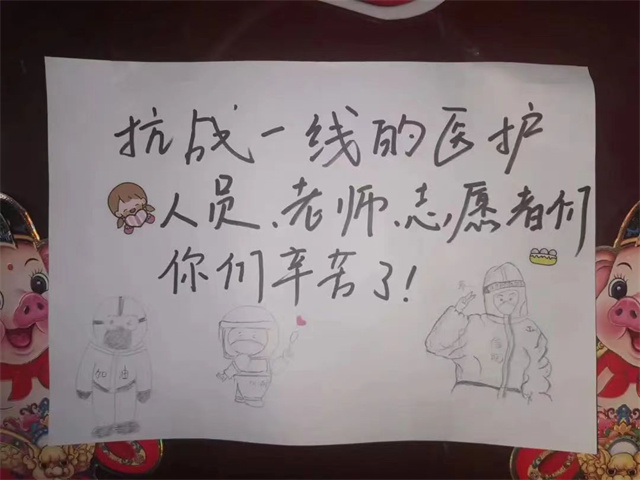 抗战一线的医护
人员、老师、志愿者们
你们辛苦了!
加油